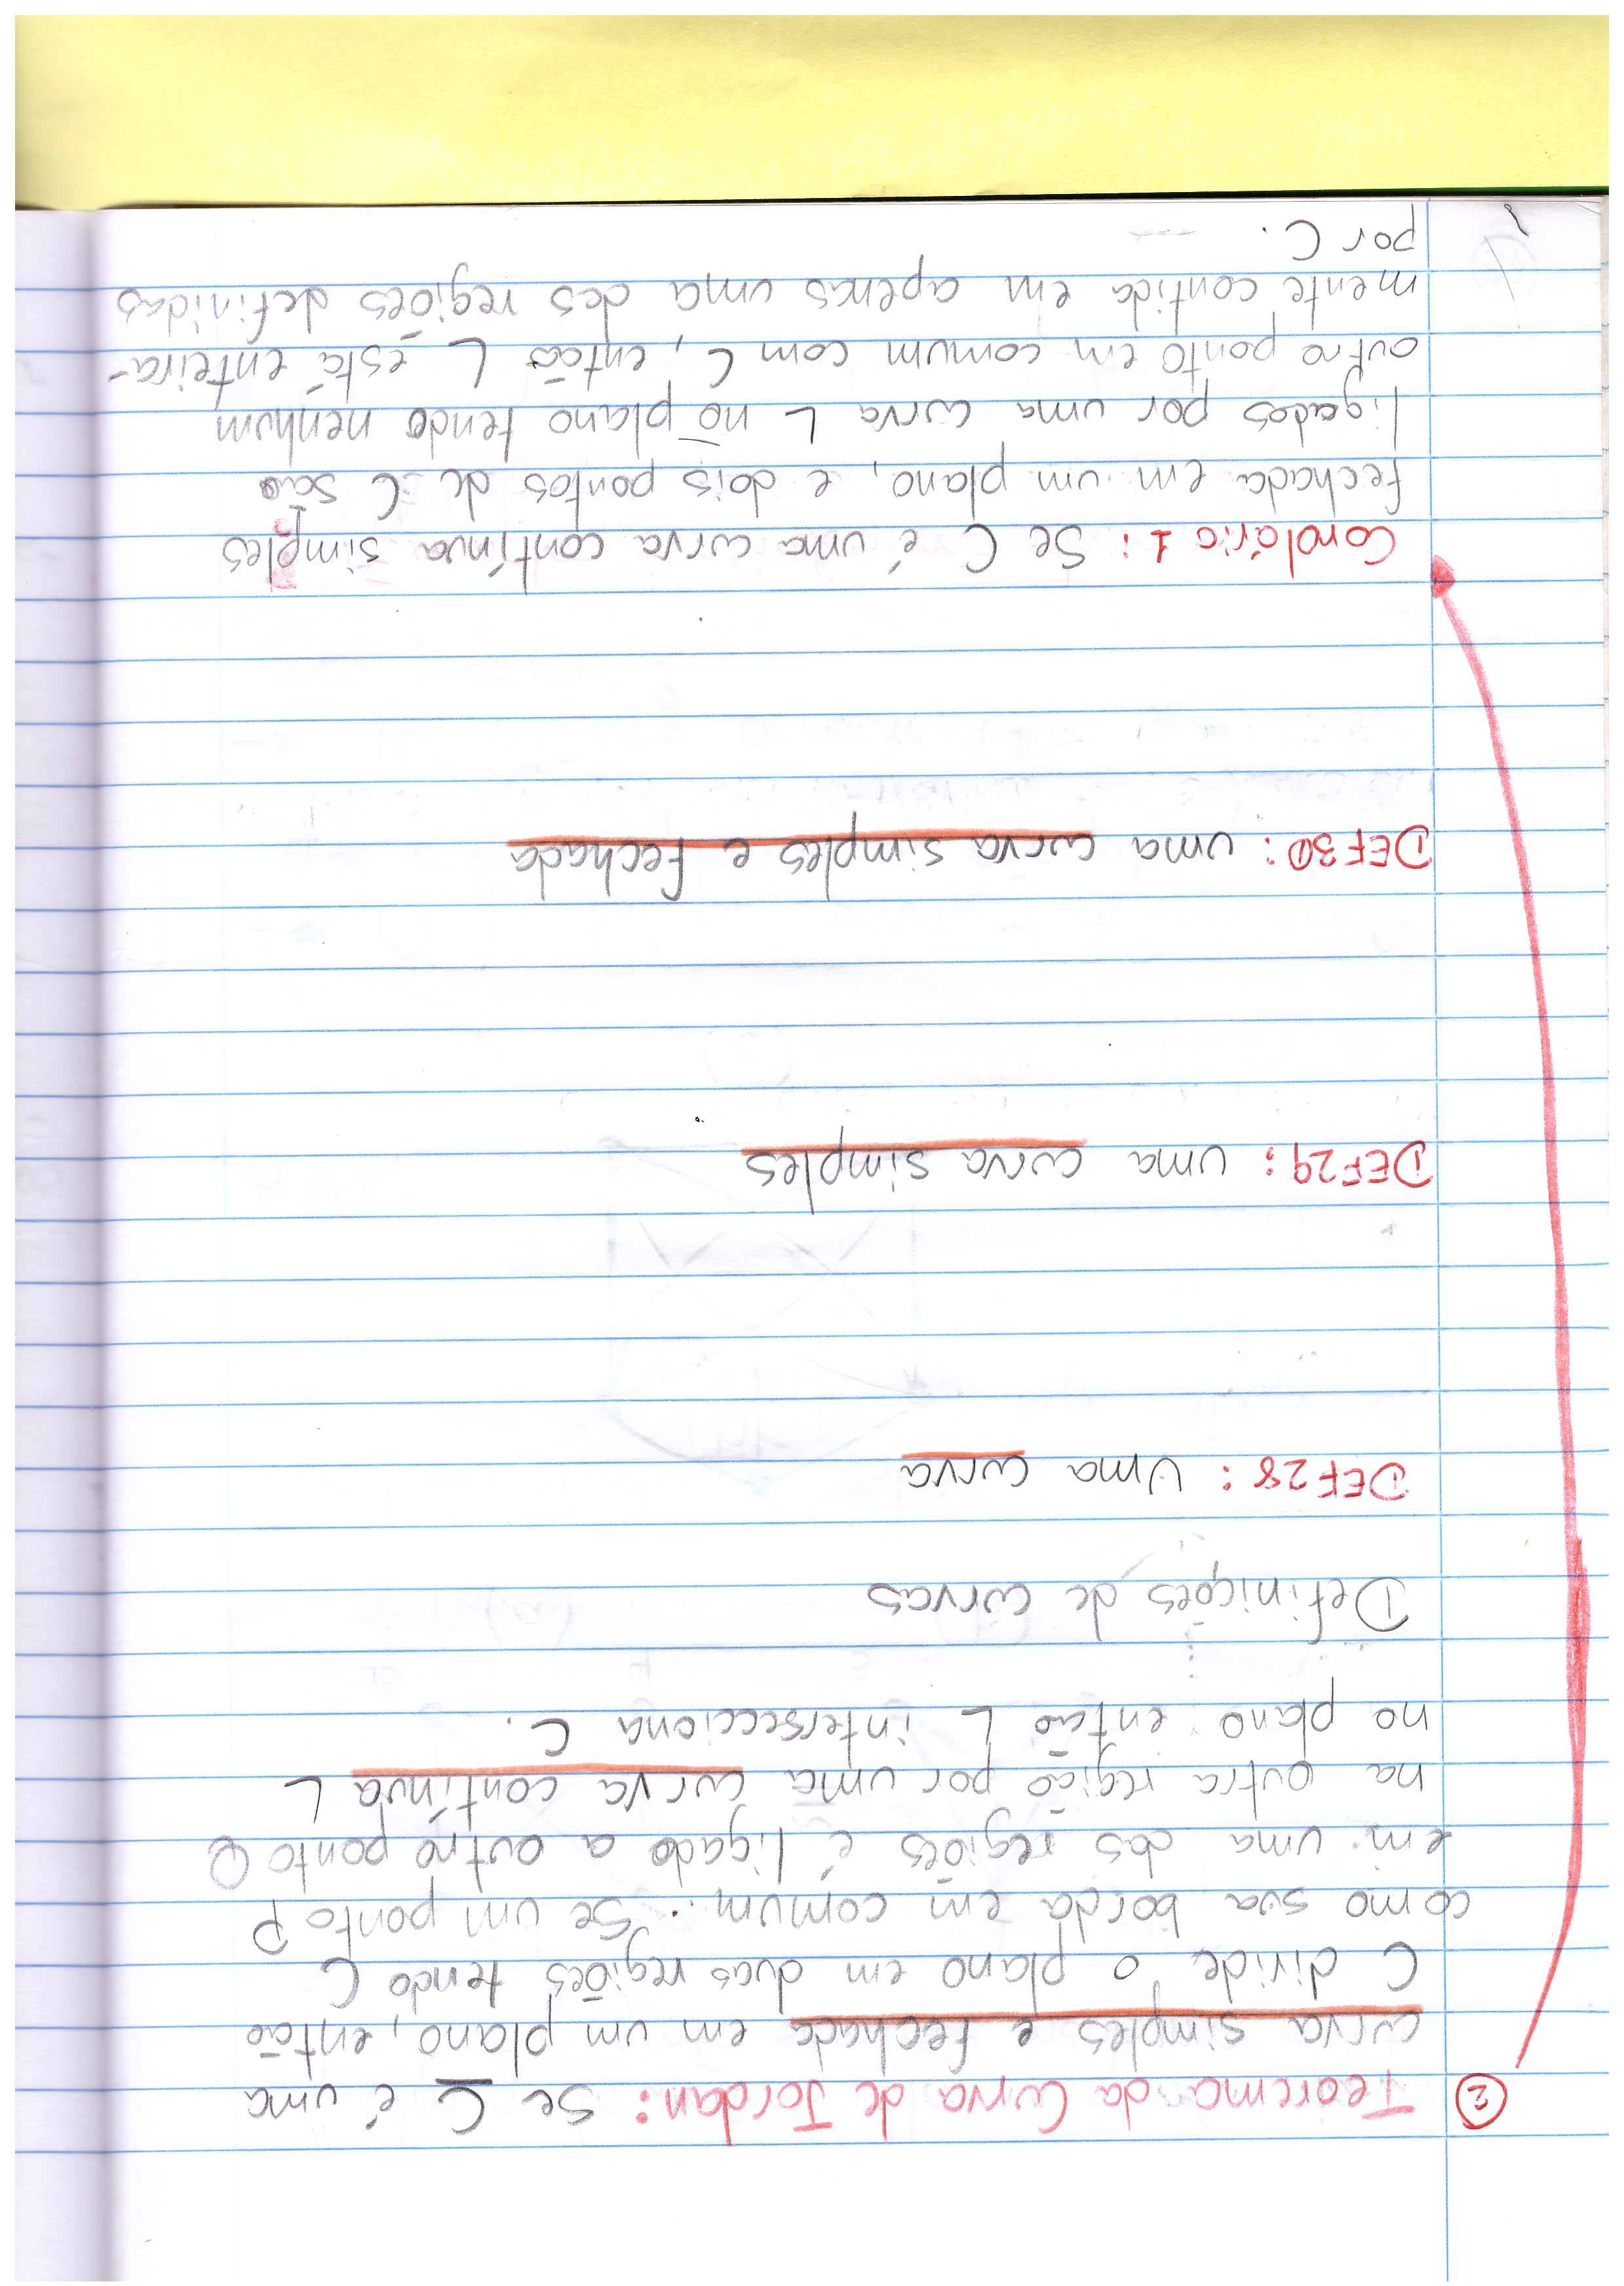 ② Teorema da Curva de Jordan: Se C é uma
curva simples e fechada em um plano, então
C divide o plano em duas regiões tendo C
como sua borda em comum. Se um ponto P
em uma das regiões é ligado a outro ponto Q
na outra região por uma curva contínua L
no plano então L intersecciona C.
Definições de curvas
DEF28: Uma curva
DEF29: uma curva simples
DEF30: uma curva simples e fechada
Corolário 1: Se C é uma curva contínua simples
fechada em um plano, e dois pontos de C são
ligados por uma curva L no plano tendo nenhum
outro ponto em comum com C, então L está enteira-
mente contida em apenas uma das regiões definidas
por C.